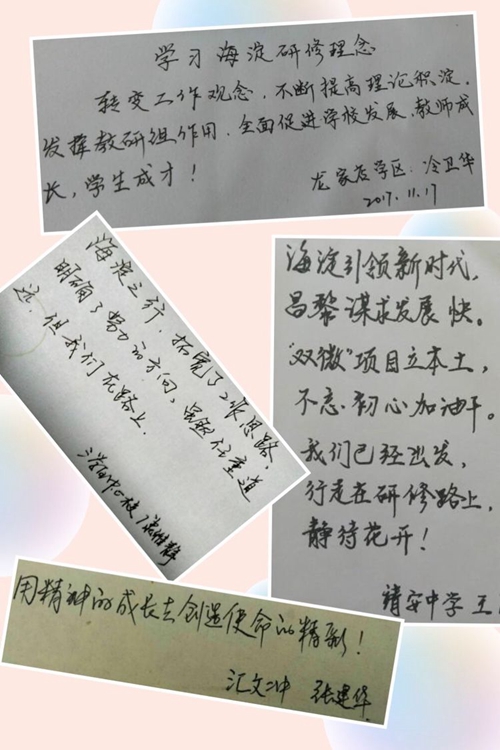 学习海淀研修理念
转变工作观念，不断提高理论积淀，
发挥教研组作用，全面促进学校发展、教师成
长，学生成才！
龙家店学区：冷卫华
2017.11.17
海淀之行，拓宽了工作思路，
明确了努力的方向，虽然任重道
远，但我们在路上。
中心校
海淀引领新时代，
昌黎谋求发展快。
“双微”项目立本土，
不忘初心加油干。
我们已经出发，
行走在研修路上，
静待花开！
靖安中学 王
用精神的成长去创造使命的精彩！
汇文二中 张建华